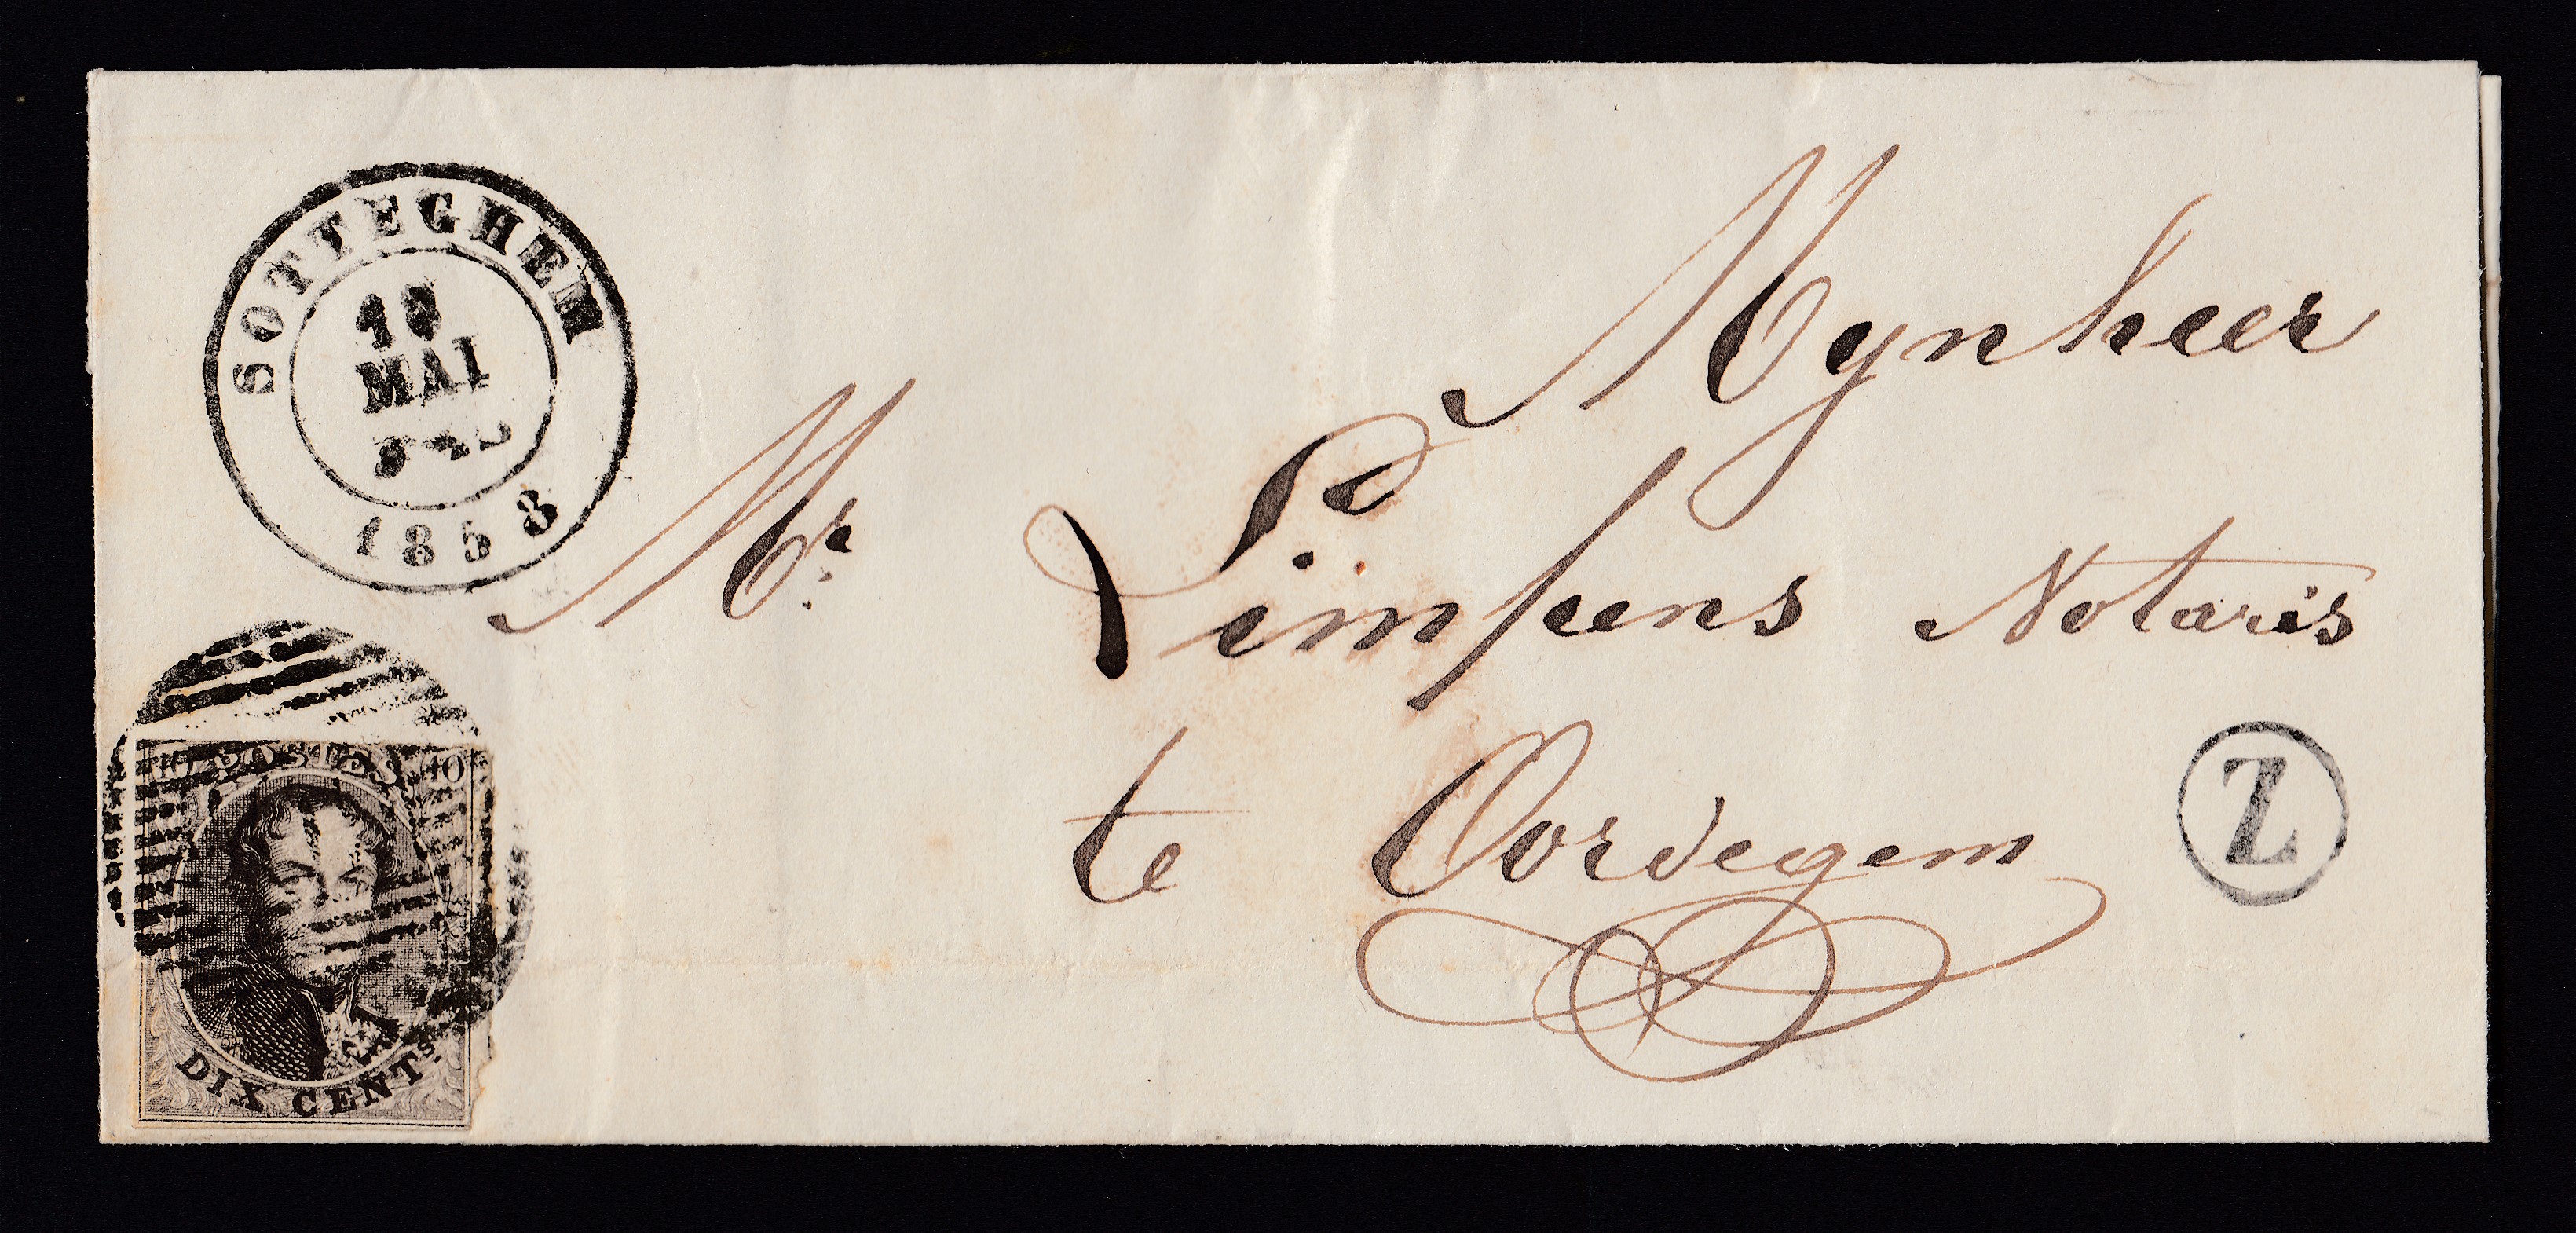 SOTTEGHEM
MAI
1858
Mynheer
Mr. Limpens Notaris
te Oordegem
Z
POSTES 10
DIX CENTS.